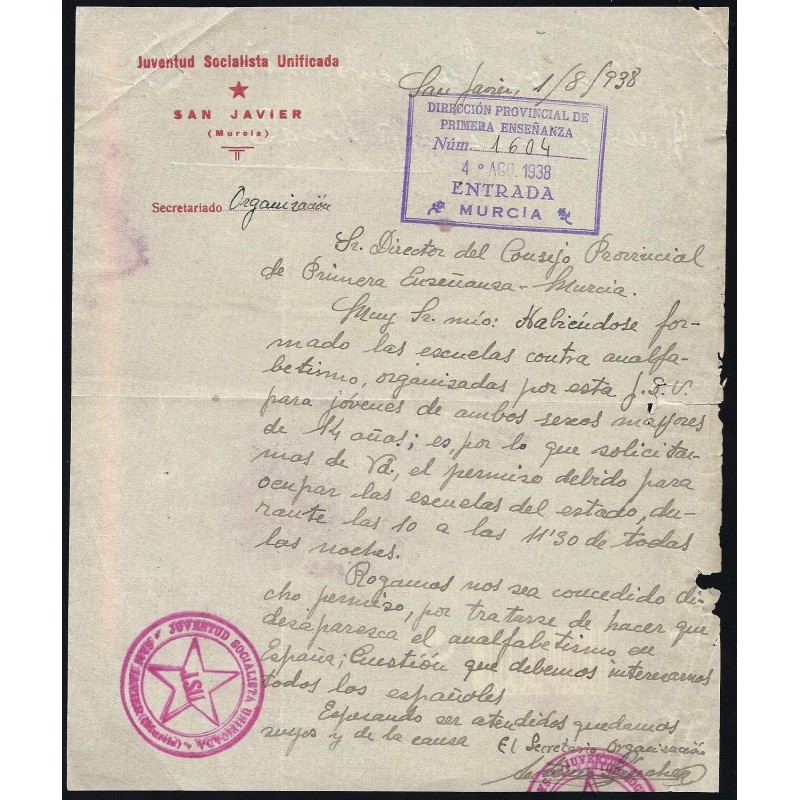 Juventud Socialista Unificada
SAN JAVIER
(Murcia)
San Javier, 1/8/938
DIRECCIÓN PROVINCIAL DE
PRIMERA ENSEÑANZA
Núm. 1604
4 AGO. 1938
ENTRADA
MURCIA
Secretariado Organización
Sr. Director del Consejo Provincial
de Primera Enseñansa - Murcia.
Muy Sr. mío: Habiéndose for-
mado las escuelas contra analfa-
betismo, organisadas por esta J.S.U.
para jóvenes de ambos sexos mayores
de 14 años; es, por lo que solicita-
mos de Vd., el permiso debido para
ocupar las escuelas del estado, du-
rante las 10 a las 11'30 de todas
las noches.
Rogamos nos sea concedido di-
cho permiso, por tratarse de hacer que
desaparesca el analfabetismo en
España; Cuestión que debemos interesarnos
todos los españoles
Esperando ser atendidos quedamos
suyos y de la causa El Secretario Organización
JUVENTUD SOCIALISTA UNIFICADA
SAN
(Murcia)
JUVENTUD SOCIALISTA